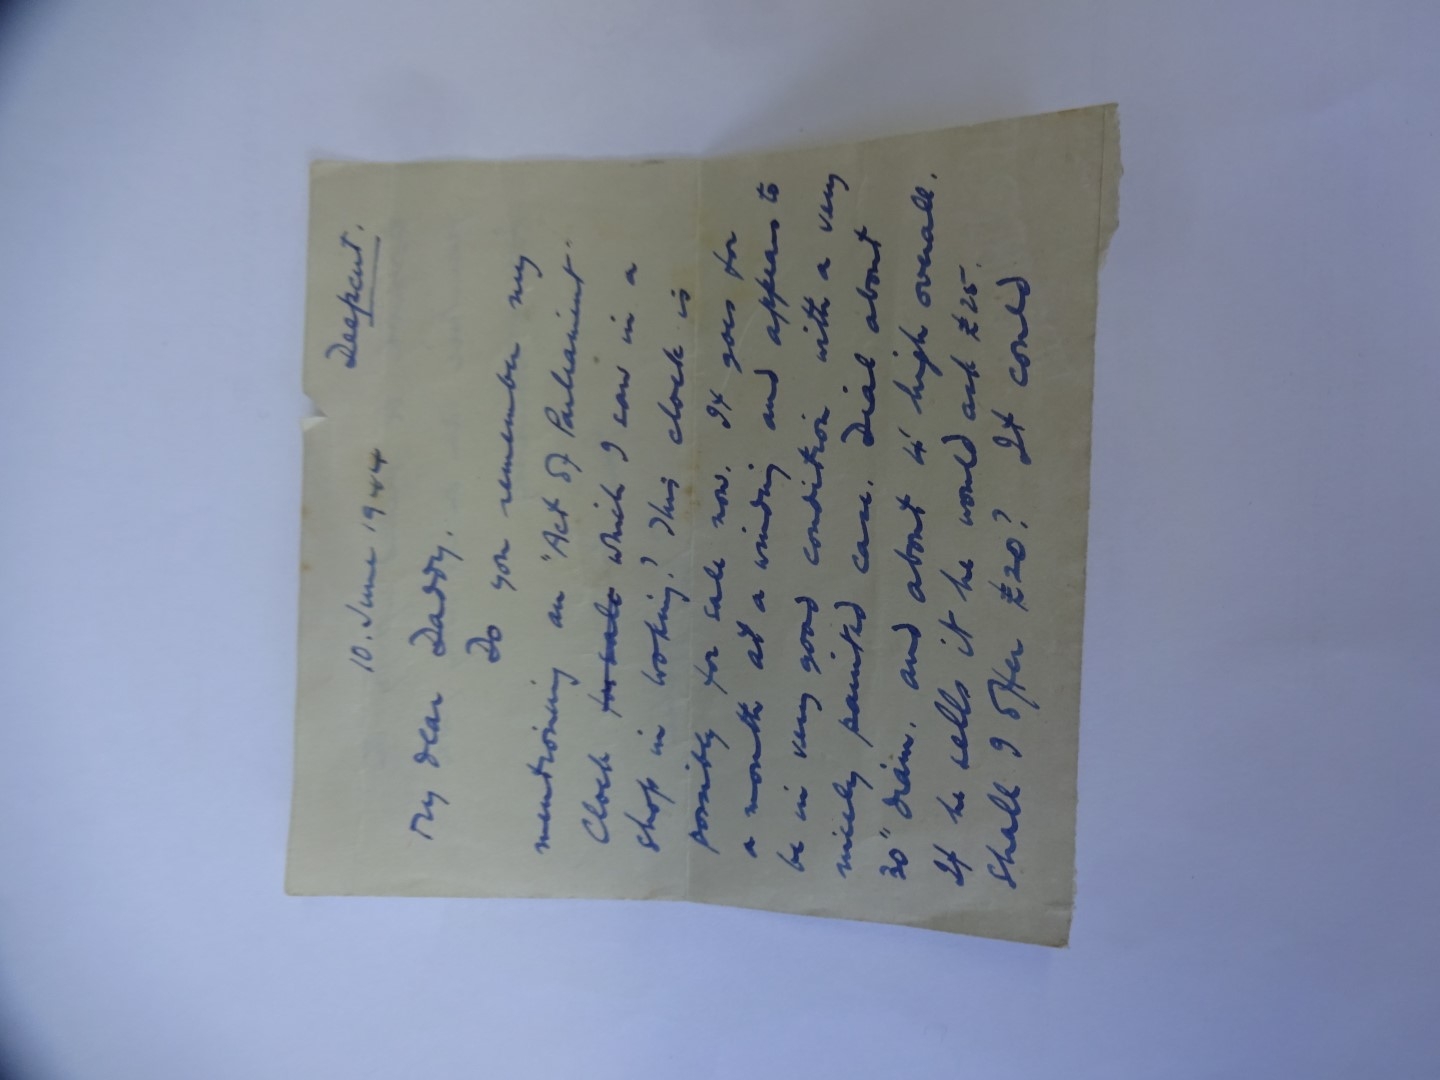 Deepcut.
10. June 1944
My dear Daddy.
Do you remember my
mentioning an "Act of Parliament.
Clock for sale which I saw in a
shop in Woking? This clock is
possibly for sale now. It goes for
a month at a winding and appears to
be in very good condition with a very
nicely painted case. Dial about
30" diam. and about 4' high overall.
If he sells it he would ask £25.
Shall I offer £20? It could